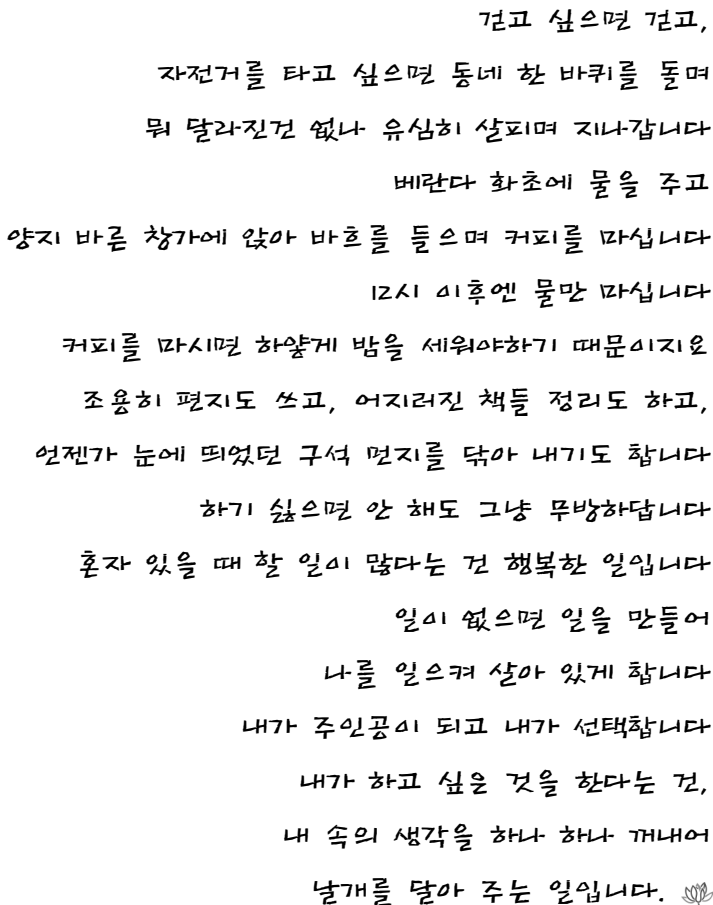 걷고 싶으면 걷고,
자전거를 타고 싶으면 동네 한 바퀴를 돌며
뭐 달라진건 없나 유심히 살피며 지나갑니다
베란다 화초에 물을 주고
양지 바른 창가에 앉아 바흐를 들으며 커피를 마십니다
12시 이후엔 물만 마십니다
커피를 마시면 하얗게 밤을 세워야하기 때문이지요
조용히 편지도 쓰고, 어지러진 책들 정리도 하고,
언젠가 눈에 띄었던 구석 먼지를 닦아 내기도 합니다
하기 싫으면 안 해도 그냥 무방하답니다
혼자 있을 때 할 일이 많다는 건 행복한 일입니다
일이 없으면 일을 만들어
나를 일으켜 살아 있게 합니다
내가 주인공이 되고 내가 선택합니다
내가 하고 싶은 것을 한다는 건,
내 속의 생각을 하나 하나 꺼내어
날개를 달아 주는 일입니다.